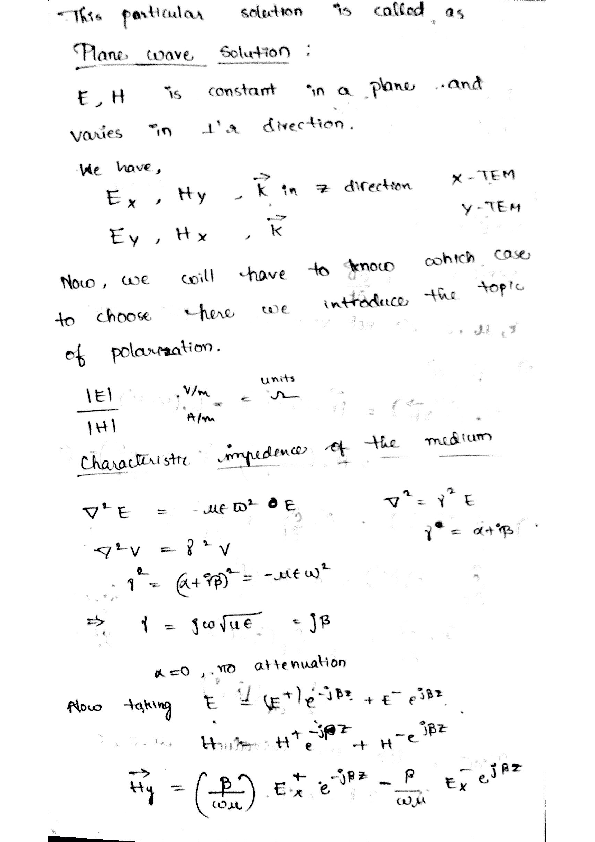 This particular solution is called as
Plane wave Solution :
E, H is constant in a plane and
varies in ⊥'r direction.
We have,
Ex , Hy , k⃗ in z direction X-TEM
Ey , Hx , k⃗ Y-TEM
Now, we will have to know which case
to choose here we introduce the topic
of polarization.
|E| / |H| V/m / A/m = Ω units
Characteristic impedence of the medium
∇² E = -μϵ ω² E ∇² = γ² E
∇² V = γ² V γ = α+jβ
γ² = (α+jβ)² = -μϵω²
⇒ γ = jω√μϵ = jβ
α=0, no attenuation
Now taking E = (E⁺) e^-jβz + E⁻ e^jβz
H = H⁺ e^-jβz + H⁻ e^jβz
H⃗y = (β/ωμ) Ex⁺ e^-jβz - β/ωμ Ex⁻ e^jβz